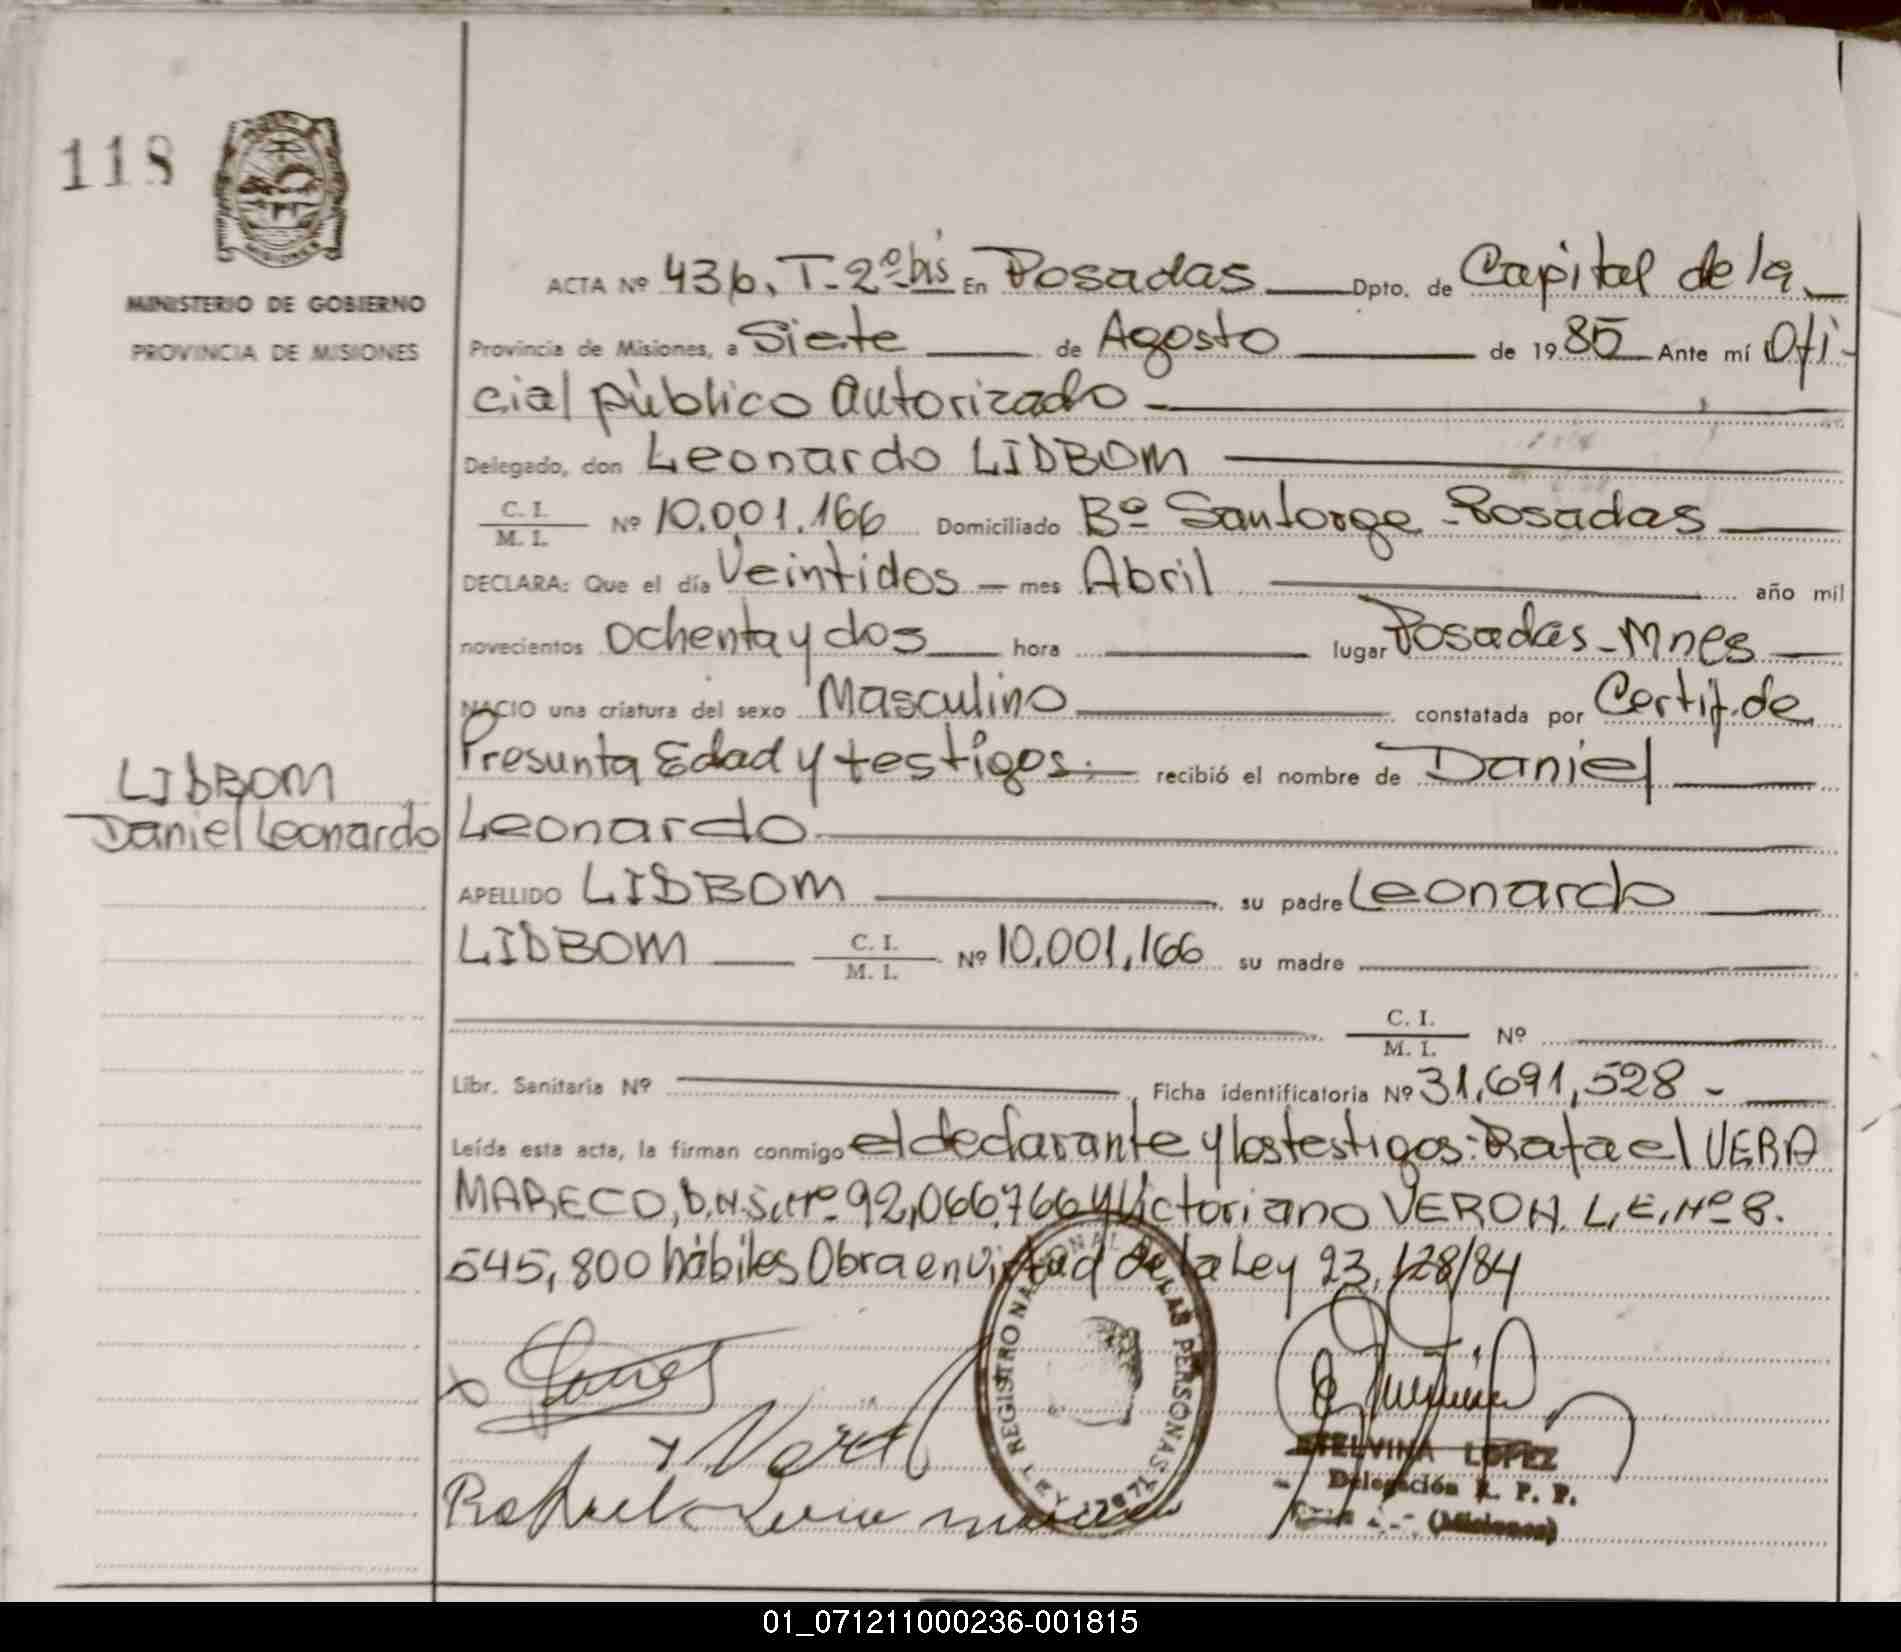 118
MINISTERIO DE GOBIERNO
PROVINCIA DE MISIONES
ACTA Nº 436, T-2º bis En Posadas Dpto. de Capital de la
Provincia de Misiones, a Siete de Agosto de 1985 Ante mí Ofi-
cial público autorizado
Delegado, don Leonardo LIDBOM
C. I. / M. I. Nº 10.001.166 Domiciliado Bº San Jorge - Posadas
DECLARA: Que el día Veintidos mes Abril año mil
novecientos ochenta y dos hora lugar Posadas - Mnes
NACIO una criatura del sexo Masculino constatada por Certif. de
Presunta Edad y testigos. recibió el nombre de Daniel
Leonardo
LIDBOM
Daniel Leonardo
APELLIDO LIDBOM su padre Leonardo
LIDBOM C. I. / M. I. Nº 10.001,166 su madre
C. I. / M. I. Nº
Libr. Sanitaria Nº Ficha identificatoria Nº 31,691,528 -
Leída esta acta, la firman conmigo el declarante y los testigos: Rafael VERA
MARECO, D.N.I. Nº 92,066,766 y Victoriano VERON. L.E. Nº 8.
545,800 hábiles Obra en virtud de la Ley 23,128/84
REGISTRO NACIONAL DE LAS PERSONAS
LEY 17671
ETELVINA LOPEZ
Delegación R. P. P.
(Misiones)
01_071211000236-001815